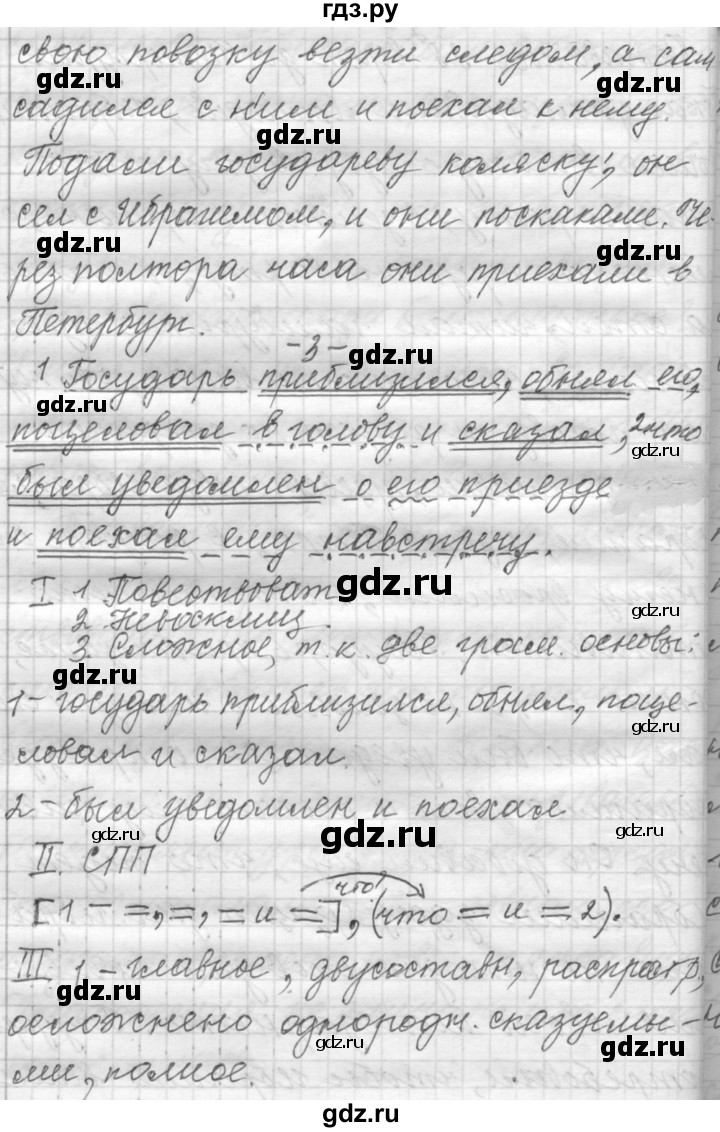 гдз.ру
свою повозку везти следом, а сам
gdz.ru gdz.ru
садился с ним и поехал к нему.
gdz.ru
Подали государеву коляску; он
сел с Ибрагимом, и они поскакали. Че-
gdz.ru gdz.ru
рез полтора часа они приехали в
Петербург.
-3-
gdz.ru
1 Государь приблизился, обнял его,
gdz.ru
поцеловал в голову и сказал, 2что
gdz.ru
был уведомлен о его приезде
и поехал ему навстречу.
gdz.ru
I 1 Повествоват.
2 Невосклиц.
gdz.ru
3. Сложное, т.к. две грам. основы:
gdz.ru
1-государь приблизился, обнял, поце-
gdz.ru
ловал и сказал.
2-был уведомлен и поехал
gdz.ru gdz.ru gdz.ru
II. СПП
что?
[1 – =, =, = и =], (что = и = 2).
III 1-главное, двусоставн, распростр,
gdz.ru gdz.ru
осложнено однородн. сказуемы-
gdz.ru gdz.ru
ми, полное.
gdz.ru
gdz.ru